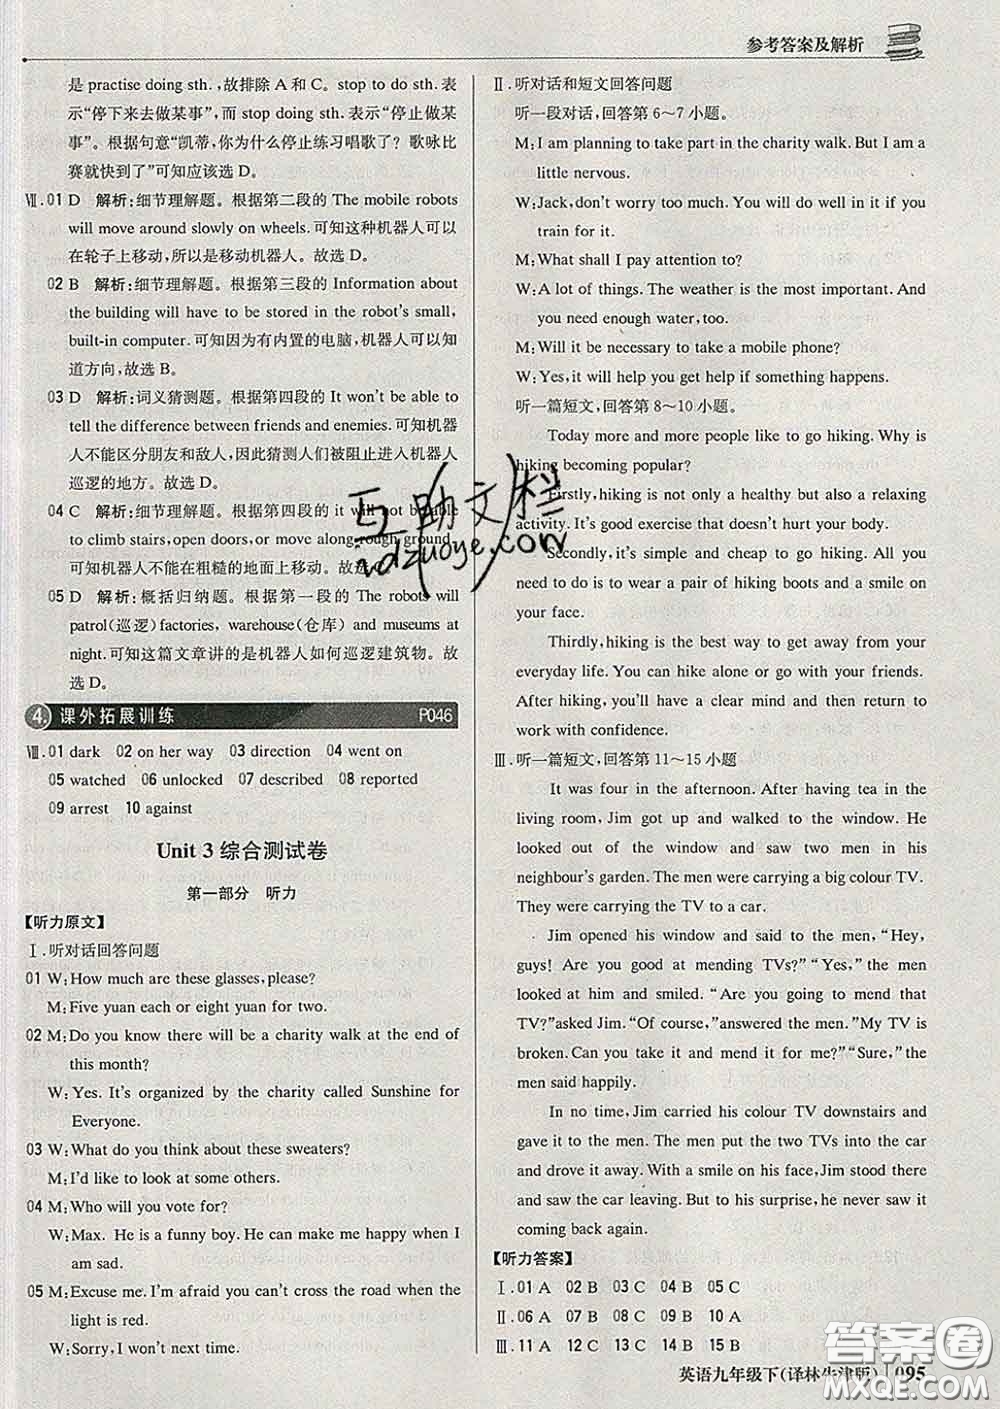 参考答案及解析
是 practise doing sth.,故排除 A 和 C。stop to do sth. 表
示“停下来去做某事”,而 stop doing sth. 表示“停止做某
事”。根据句意“凯蒂,你为什么停止练习唱歌了? 歌咏比
赛就快到了”可知应该选 D。
Ⅶ.01 D 解析:细节理解题。根据第二段的 The mobile robots
will move around slowly on wheels. 可知这种机器人可以
在轮子上移动,所以是移动机器人。故选 D。
02 B 解析:细节理解题。根据第三段的 Information about
the building will have to be stored in the robot's small,
built-in computer. 可知因为有内置的电脑,机器人可以知
道方向,故选 B。
03 D 解析:词义猜测题。根据第四段的 It won't be able to
tell the difference between friends and enemies. 可知机器
人不能区分朋友和敌人,因此猜测人们被阻止进入机器人
巡逻的地方。故选 D。
04 C 解析:细节理解题。根据第四段的 it will not be able
to climb stairs, open doors, or move along rough ground.
可知机器人不能在粗糙的地面上移动。故选 C。
05 D 解析:概括归纳题。根据第一段的 The robots will
patrol(巡逻)factories, warehouse(仓库) and museums at
night. 可知这篇文章讲的是机器人如何巡逻建筑物。故
选 D。
4. 课外拓展训练 P046
Ⅷ.01 dark 02 on her way 03 direction 04 went on
05 watched 06 unlocked 07 described 08 reported
09 arrest 10 against
Unit 3 综合测试卷
第一部分 听力
【听力原文】
Ⅰ.听对话回答问题
01 W:How much are these glasses,please?
M:Five yuan each or eight yuan for two.
02 M:Do you know there will be a charity walk at the end of
this month?
W:Yes. It's organized by the charity called Sunshine for
Everyone.
03 W:What do you think about these sweaters?
M:I'd like to look at some others.
04 M:Who will you vote for?
W:Max. He is a funny boy. He can make me happy when I
am sad.
05 M:Excuse me. I'm afraid you can't cross the road when the
light is red.
W:Sorry,I won't next time.
Ⅱ.听对话和短文回答问题
听一段对话,回答第 6～7 小题。
M:I am planning to take part in the charity walk. But I am a
little nervous.
W:Jack,don't worry too much. You will do well in it if you
train for it.
M:What shall I pay attention to?
W:A lot of things. The weather is the most important. And
you need enough water,too.
M:Will it be necessary to take a mobile phone?
W:Yes,it will help you get help if something happens.
听一篇短文,回答第 8～10 小题。
Today more and more people like to go hiking. Why is
hiking becoming popular?
Firstly,hiking is not only a healthy but also a relaxing
activity. It's good exercise that doesn't hurt your body.
Secondly,it's simple and cheap to go hiking. All you
need to do is to wear a pair of hiking boots and a smile on
your face.
Thirdly,hiking is the best way to get away from your
everyday life. You can hike alone or go with your friends.
After hiking,you will have a clear mind and then return to
work with confidence.
Ⅲ.听一篇短文,回答第 11～15 小题
It was four in the afternoon. After having tea in the
living room,Jim got up and walked to the window. He
looked out of the window and saw two men in his
neighbour's garden. The men were carrying a big colour TV.
They were carrying the TV to a car.
Jim opened his window and said to the men,“Hey,
guys! Are you good at mending TVs?”“Yes,”the men
looked at him and smiled. “Are you going to mend that
TV?”asked Jim.“Of course,”answered the men.“My TV is
broken. Can you take it and mend it for me?”“Sure,”the
men said happily.
In no time,Jim carried his colour TV downstairs and
gave it to the men. The men put the two TVs into the car
and drove it away. With a smile on his face,Jim stood there
and saw the car leaving. But to his surprise,he never saw it
coming back again.
【听力答案】
Ⅰ.01 A 02 B 03 C 04 B 05 C
Ⅱ.06 A 07 B 08 C 09 B 10 A
Ⅲ.11 A 12 B 13 C 14 B 15 B
英语九年级下(译林牛津版) 095
互助文栏
hdzuoye.com
答案圈
MXQE.COM